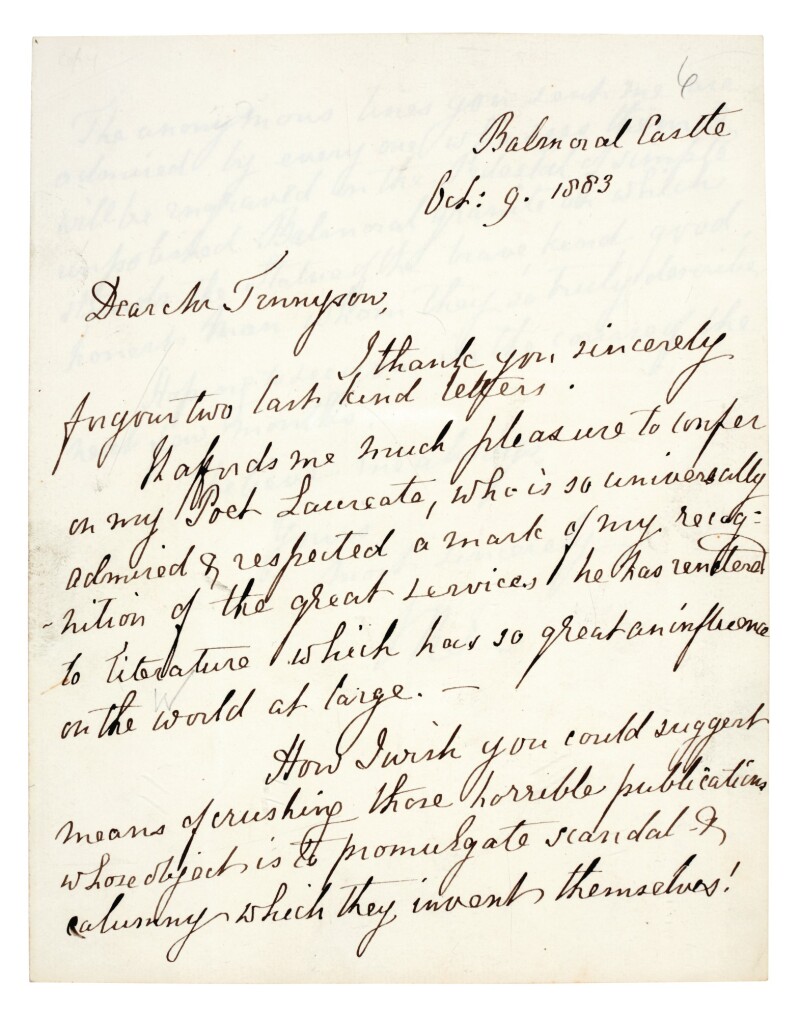 6
Balmoral Castle
Oct: 9. 1883
Dear Mr Tennyson,
I thank you sincerely
for your two last kind letters.
It affords me much pleasure to confer
on my Poet Laureate, who is so universally
admired & respected a mark of my recog=
-nition of the great services he has rendered
to literature which has so great an influence
on the world at large. —
How I wish you could suggest
means of crushing those horrible publications
whose object is to promulgate scandal &
calumny which they invent themselves!